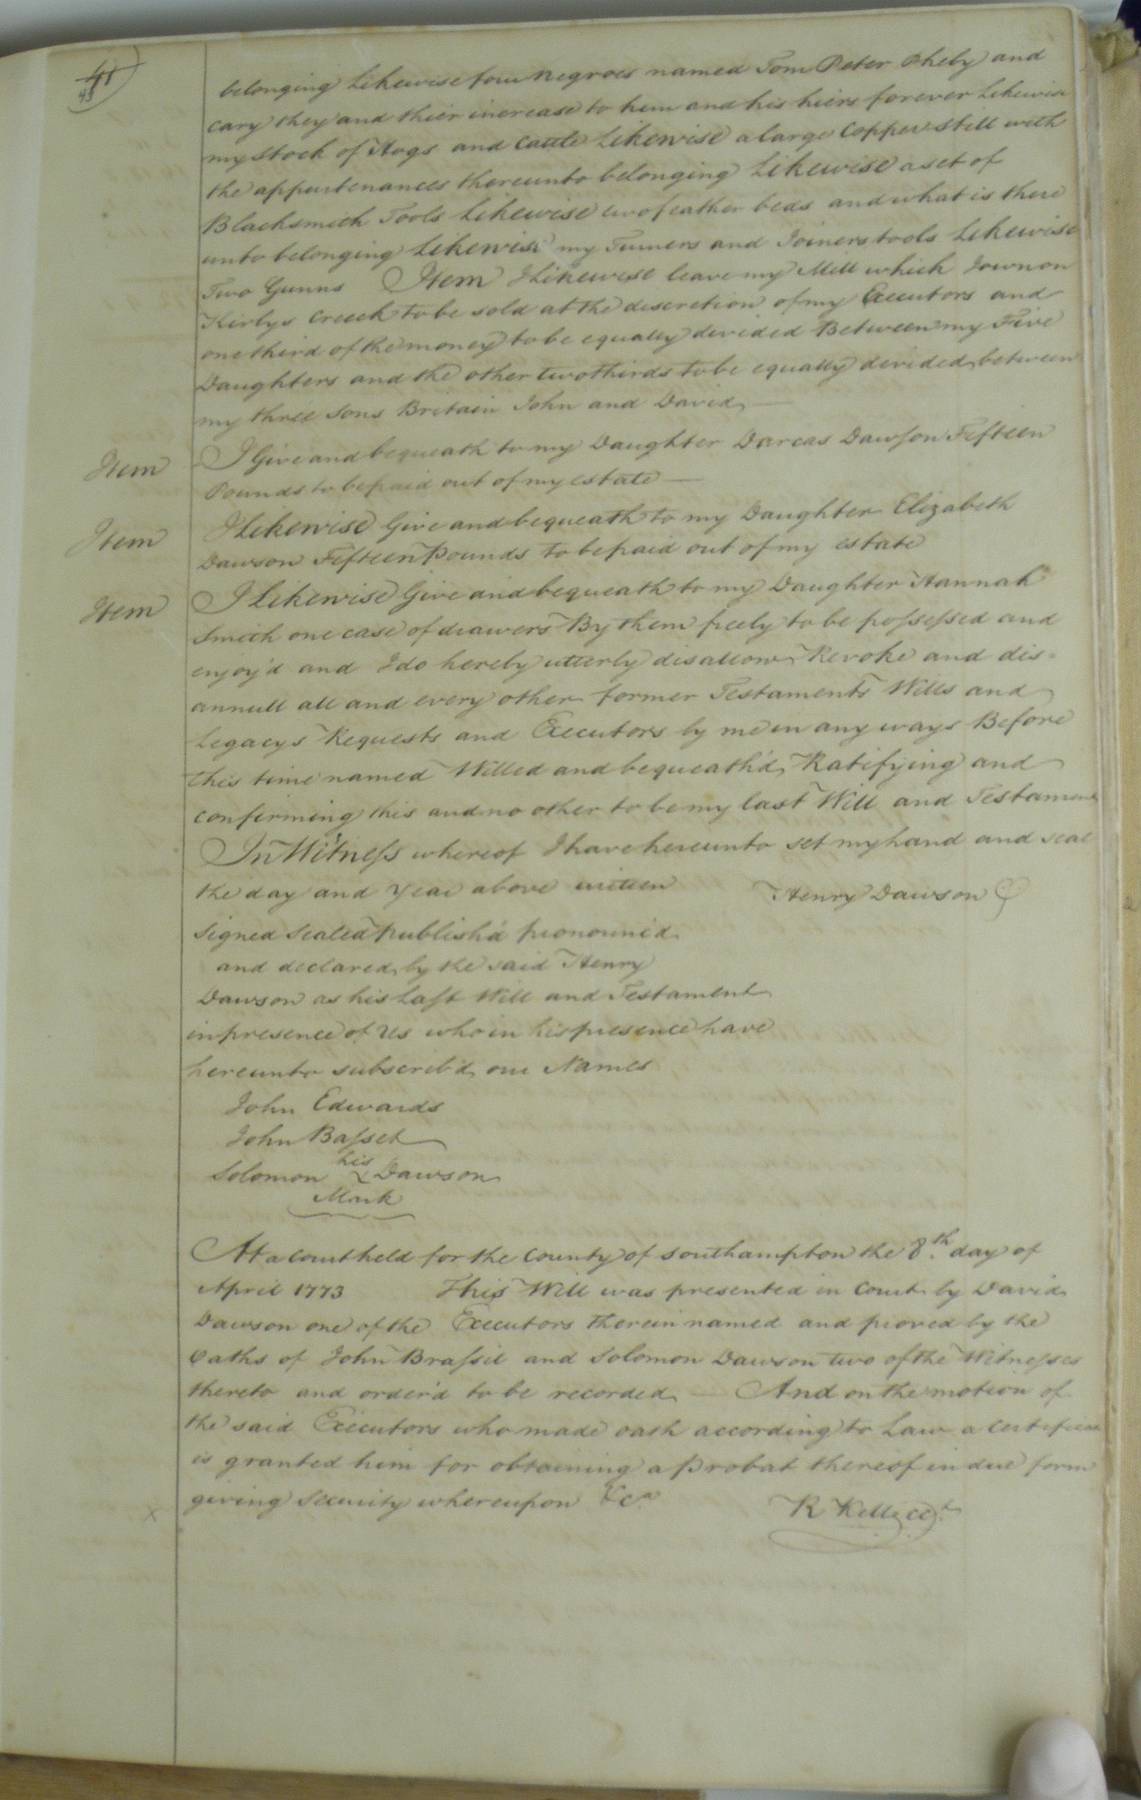 41
45
belonging Likewise four negroes named Tom Peter Pheby and
cary they and thier increase to him and his hiers forever Likewise
my Stock of Hogs and Cattle Likewise a large Copper Still with
the appurtenances thereunto belonging Likewise a set of
Blacksmith Tools Likewise two feather beds and what is there
unto belonging Likewise my Turners and Joiners tools Likewise
Two Gunns Item I Likewise leave my Mill which I own on
Kirbys Creeck to be sold at the discretion of my Executors and
one third of the money to be equally devided Between my Five
Daughters and the other two thirds to be equally devided between
my three Sons Britain John and David
Item I Give and bequeath to my Daughter Darcas Dawson Fifteen
Pounds to be paid out of my estate
Item I Likewise Give and bequeath to my Daughter Elizabeth
Dawson Fifteen Pounds to be paid out of my estate
Item I Likewise Give and bequeath to my Daughter Hannah
Smith one case of drawers By them freely to be possessed and
enjoy'd and I do hereby utterly disallow Revoke and dis
annull all and every other former Testaments Wills and
Legacys Requests and Executors by me in any ways Before
this time named Willed and bequeath'd Ratifying and
confirming this and no other to be my last Will and Testament
In Witness whereof I have hereunto set my hand and seal
the day and Year above written Henry Dawson
Signed Sealed publish'd pronounc'd
and declared by the said Henry
Dawson as his Last Will and Testament
in presence of Us who in his presence have
hereunto subscrib'd our Names
John Edwards
John Basset
Solomon his Dawson
Mark
At a court held for the County of Southampton the 8th. day of
April 1773 This Will was presented in Court by David
Dawson one of the Executors therein named and proved by the
Oaths of John Brassil and Solomon Dawson two of the Witnesses
thereto and order'd to be recorded And on the motion of
the said Executors who made oath according to Law a Certificate
is granted him for obtaining a probat thereof in due form
giving Security whereupon &ca
R Kello